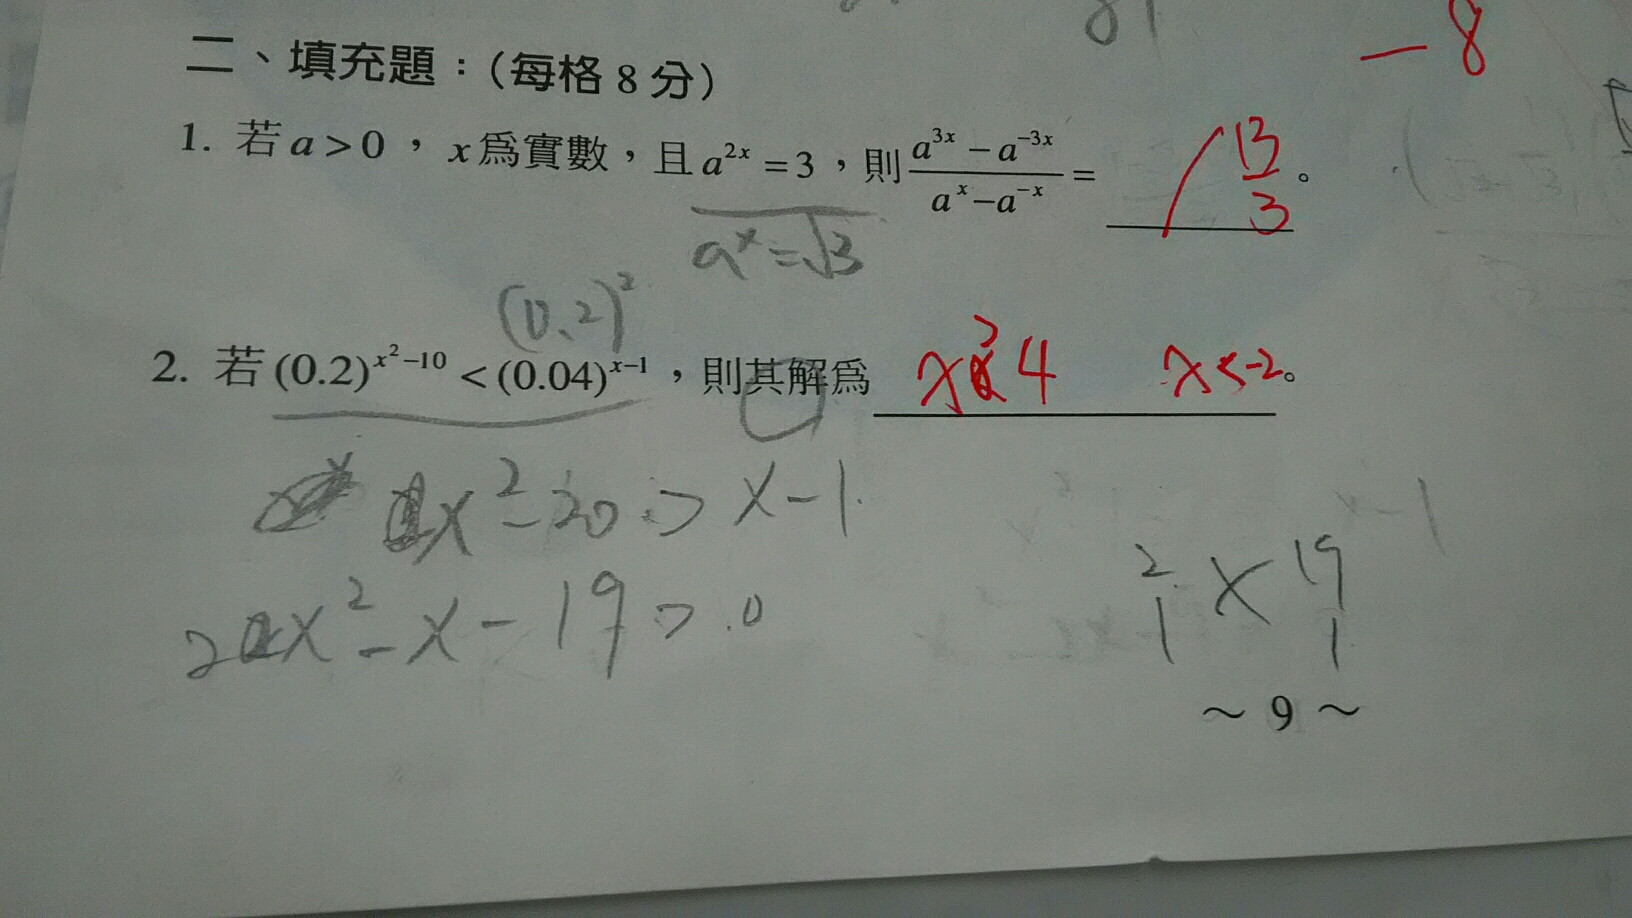 81
-8
二、填充題：(每格8分)
1. 若 a > 0，x 爲實數，且 a^{2x} = 3，則 \frac{a^{3x} - a^{-3x}}{a^x - a^{-x}} = \frac{13}{3}。
a^x = √3
(0.2)^2
2. 若 (0.2)^{x^2-10} < (0.04)^{x-1}，則其解爲 x > 4 x < -2。
x^2 - 20 > x - 1
2x^2 - x - 19 > 0
2 × 19
1 1
~ 9 ~